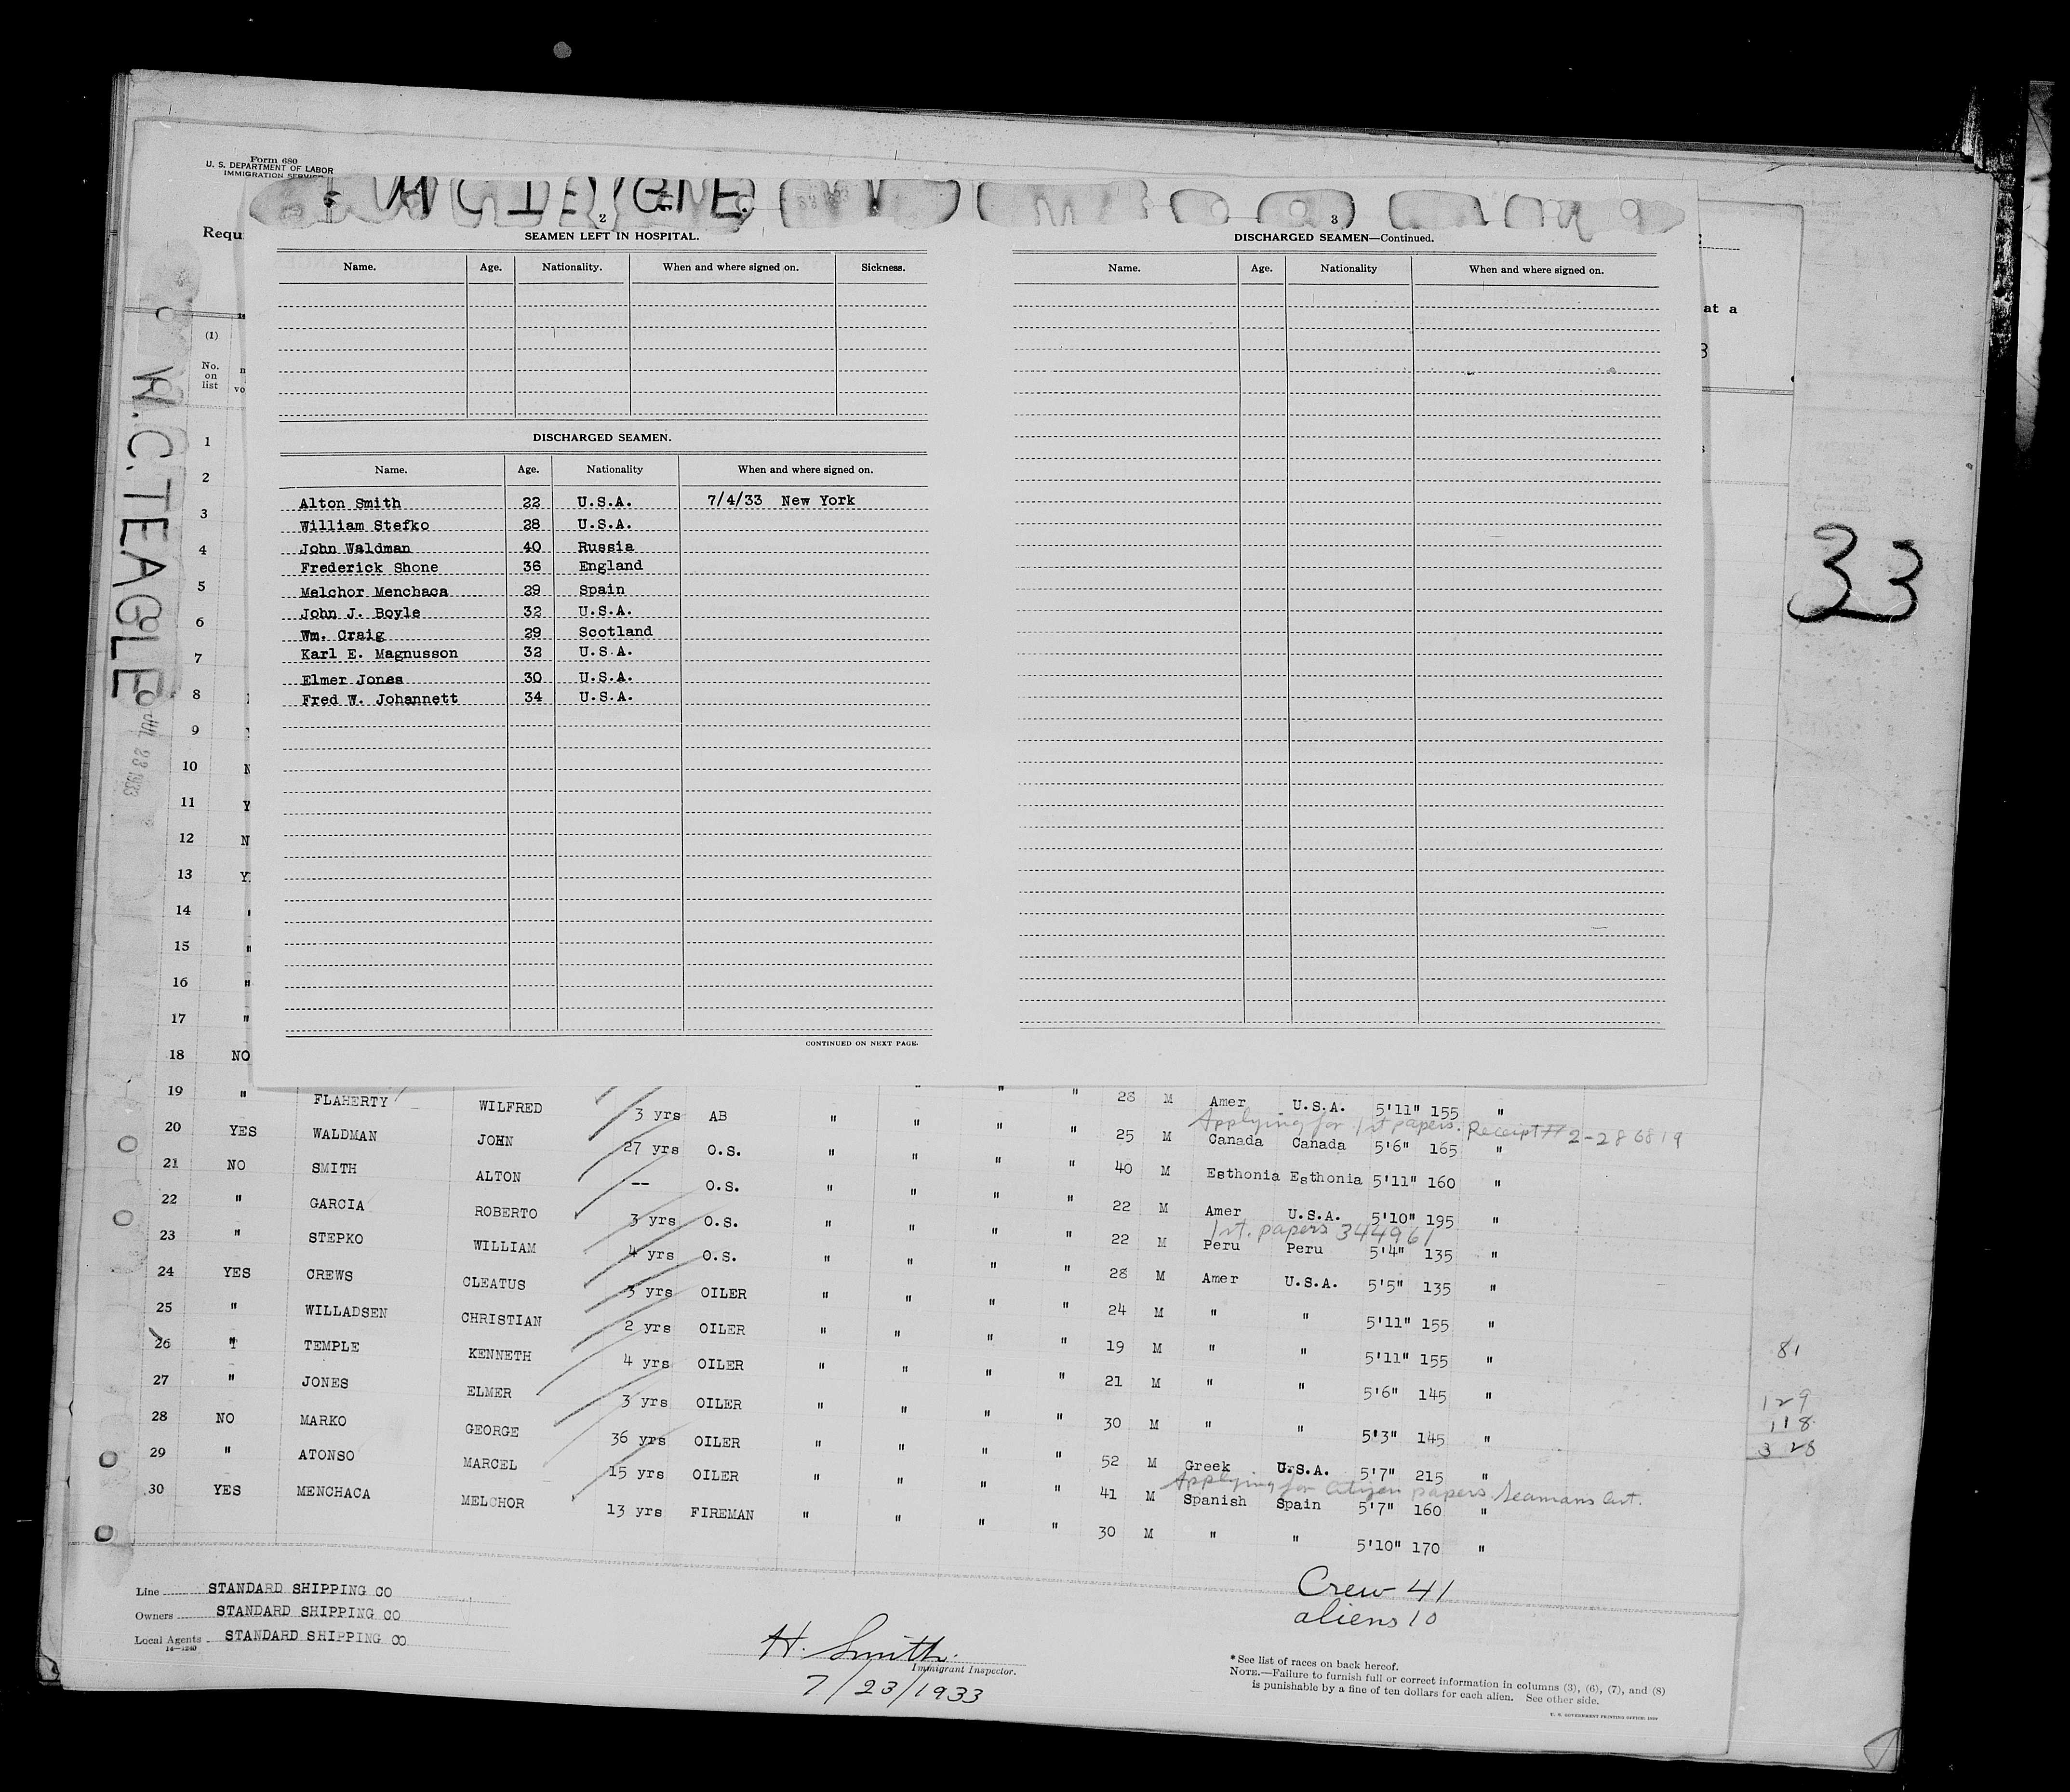 Form 680
U. S. DEPARTMENT OF LABOR
IMMIGRATION SERVICE
W.C.TEAGLE
JUL 23 1933
33
Requ
at a
(1)
No. on list
2
SEAMEN LEFT IN HOSPITAL.
Name. Age. Nationality. When and where signed on. Sickness.
DISCHARGED SEAMEN.
Name. Age. Nationality When and where signed on.
Alton Smith 22 U.S.A. 7/4/33 New York
William Stefko 28 U.S.A.
John Waldman 40 Russia
Frederick Shone 36 England
Melchor Menchaca 29 Spain
John J. Boyle 32 U.S.A.
Wm. Craig 29 Scotland
Karl E. Magnusson 32 U.S.A.
Elmer Jones 30 U.S.A.
Fred W. Johannett 34 U.S.A.
CONTINUED ON NEXT PAGE.
3
DISCHARGED SEAMEN—Continued.
Name. Age. Nationality When and where signed on.
1
2
3
4
5
6
7
8
9
10 N
11 Y
12 N
13 Y
14 "
15 "
16 "
17 "
18 NO " " "
19 " FLAHERTY WILFRED 3 yrs AB " " " " 28 M Amer U.S.A. 5'11" 155 "
Applying for 1st papers. Receipt # 2-286819
20 YES WALDMAN JOHN 27 yrs O.S. " " " " 25 M Canada Canada 5'6" 165 "
21 NO SMITH ALTON -- O.S. " " " " 40 M Esthonia Esthonia 5'11" 160 "
22 " GARCIA ROBERTO 3 yrs O.S. " " " " 22 M Amer U.S.A. 5'10" 195 "
1st. papers 344961
23 " STEPKO WILLIAM 4 yrs O.S. " " " " 22 M Peru Peru 5'4" 135 "
24 YES CREWS CLEATUS 3 yrs OILER " " " " 28 M Amer U.S.A. 5'5" 135 "
25 " WILLADSEN CHRISTIAN 2 yrs OILER " " " " 24 M " " 5'11" 155 "
26 " TEMPLE KENNETH 4 yrs OILER " " " " 19 M " " 5'11" 155 "
27 " JONES ELMER 3 yrs OILER " " " " 21 M " " 5'6" 145 "
28 NO MARKO GEORGE 36 yrs OILER " " " " 30 M " " 5'3" 145 "
29 " ATONSO MARCEL 15 yrs OILER " " " " 52 M Greek U.S.A. 5'7" 215 "
Applying for Citizen papers. Seamans Cert.
30 YES MENCHACA MELCHOR 13 yrs FIREMAN " " " " 41 M Spanish Spain 5'7" 160 "
30 M " " 5'10" 170 "
81
129
118
328
Crew 41
aliens 10
Line STANDARD SHIPPING CO
Owners STANDARD SHIPPING CO
Local Agents STANDARD SHIPPING CO
14—1240
H. Smith.
Immigrant Inspector.
7/23/1933
*See list of races on back hereof.
NOTE.—Failure to furnish full or correct information in columns (3), (6), (7), and (8)
is punishable by a fine of ten dollars for each alien. See other side.